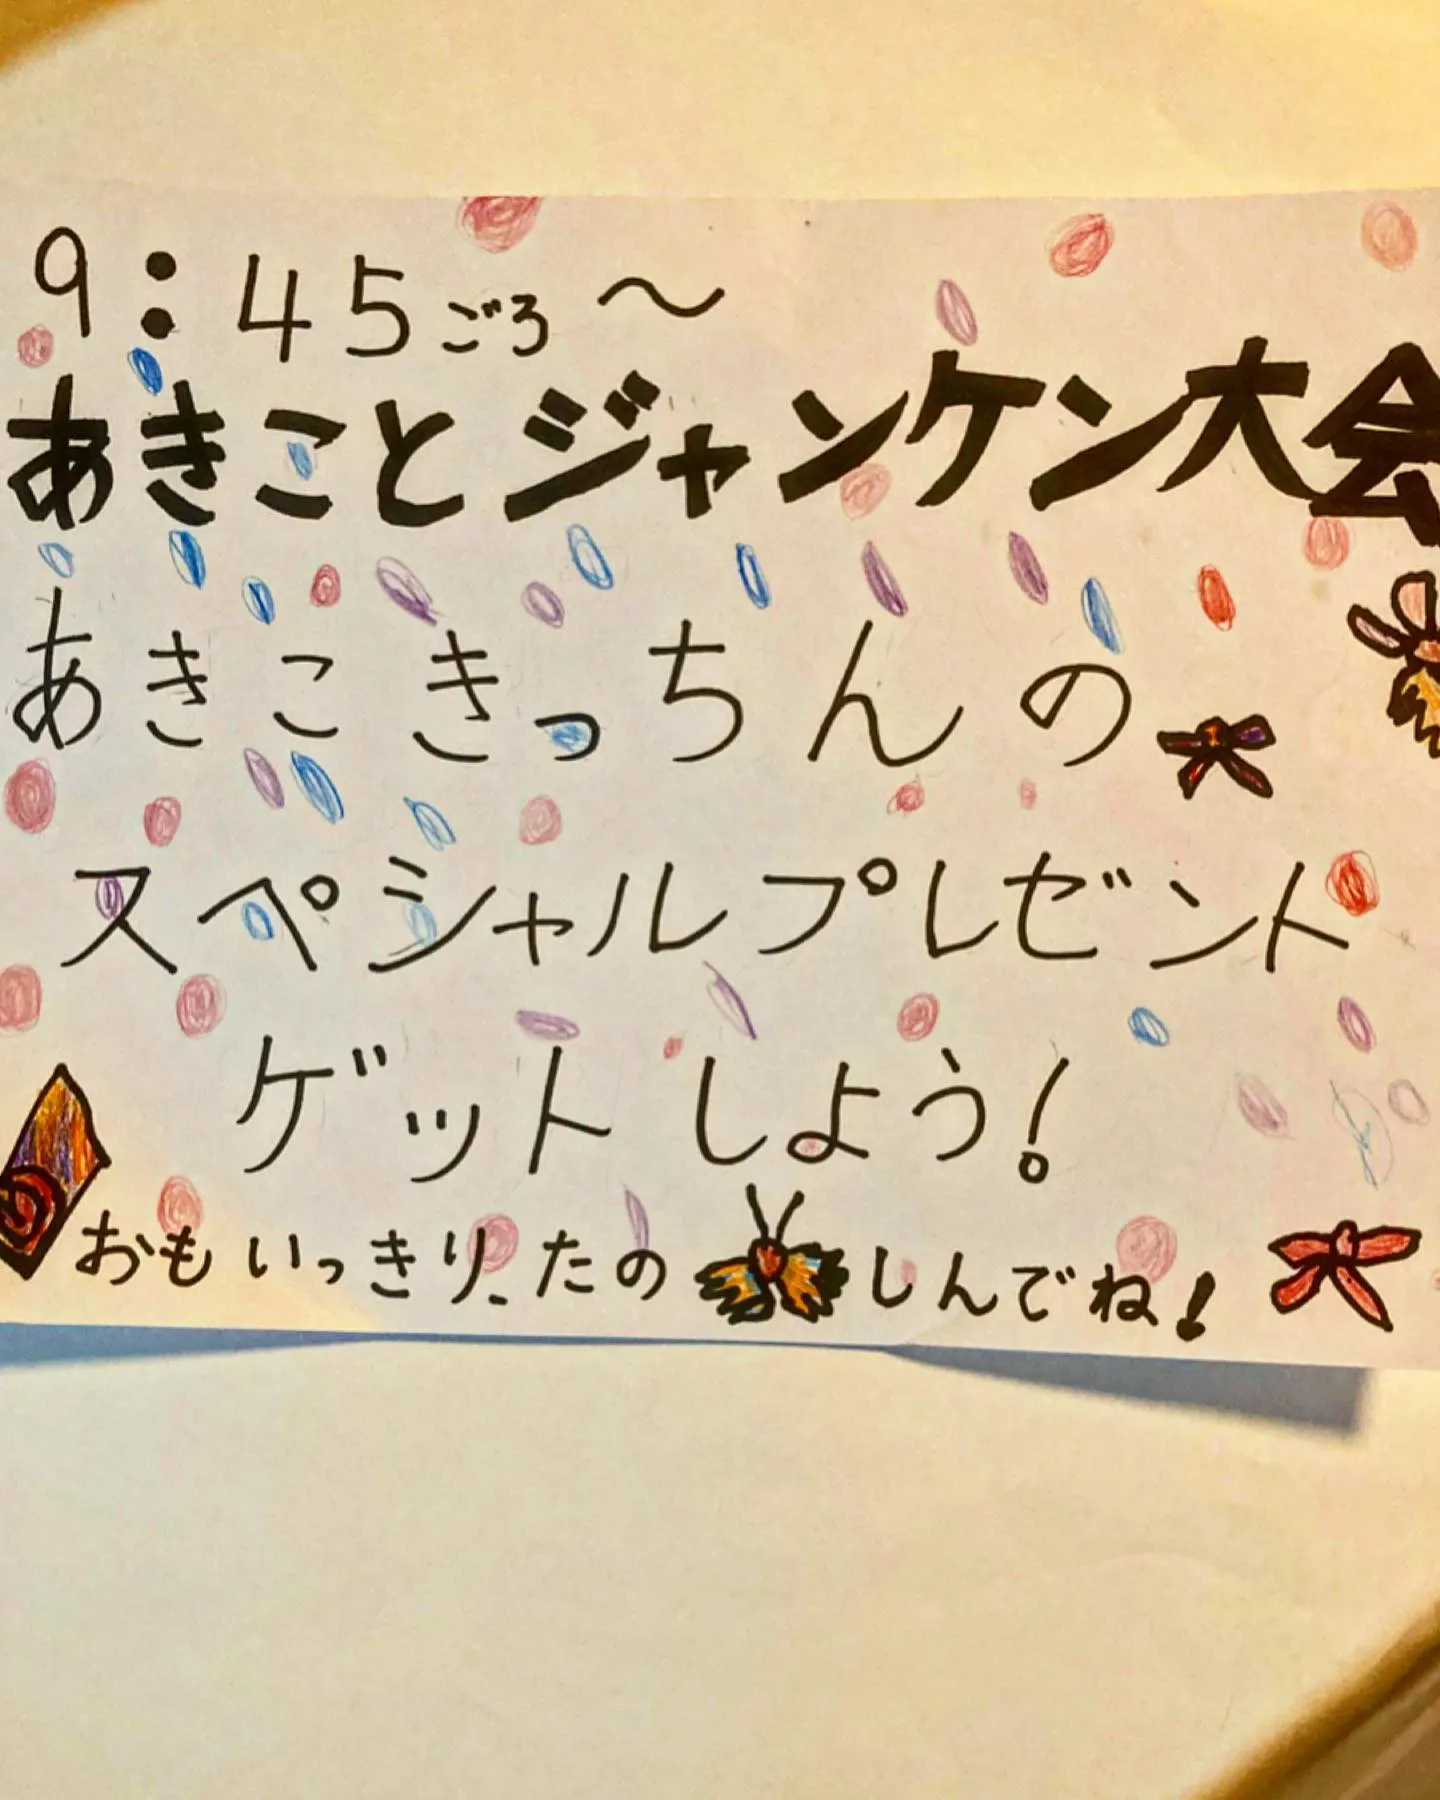 9:45ごろ〜
あきことジャンケン大会
あきこきっちんの
スペシャルプレゼント
ゲットしよう!
おもいっきりたのしんでね!